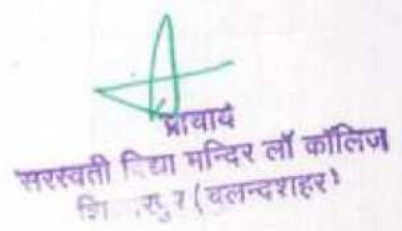 प्राचार्य
सरस्वती विद्या मन्दिर लॉ कॉलिज
(बलन्दशहर)